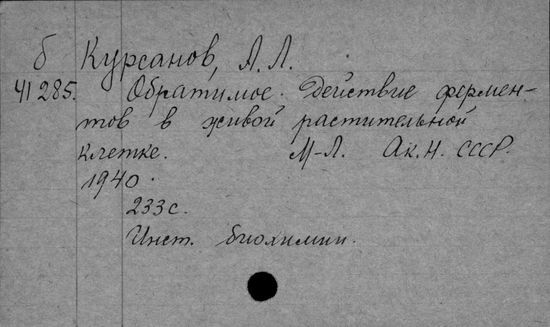 б Курсанов, А. Л.
41285. Обратимое. Действие фермен-
тов в живой растительной
клетке. М-Л. Ак. Н. СССР.
1940.
233 с.
Инст. биохимии.